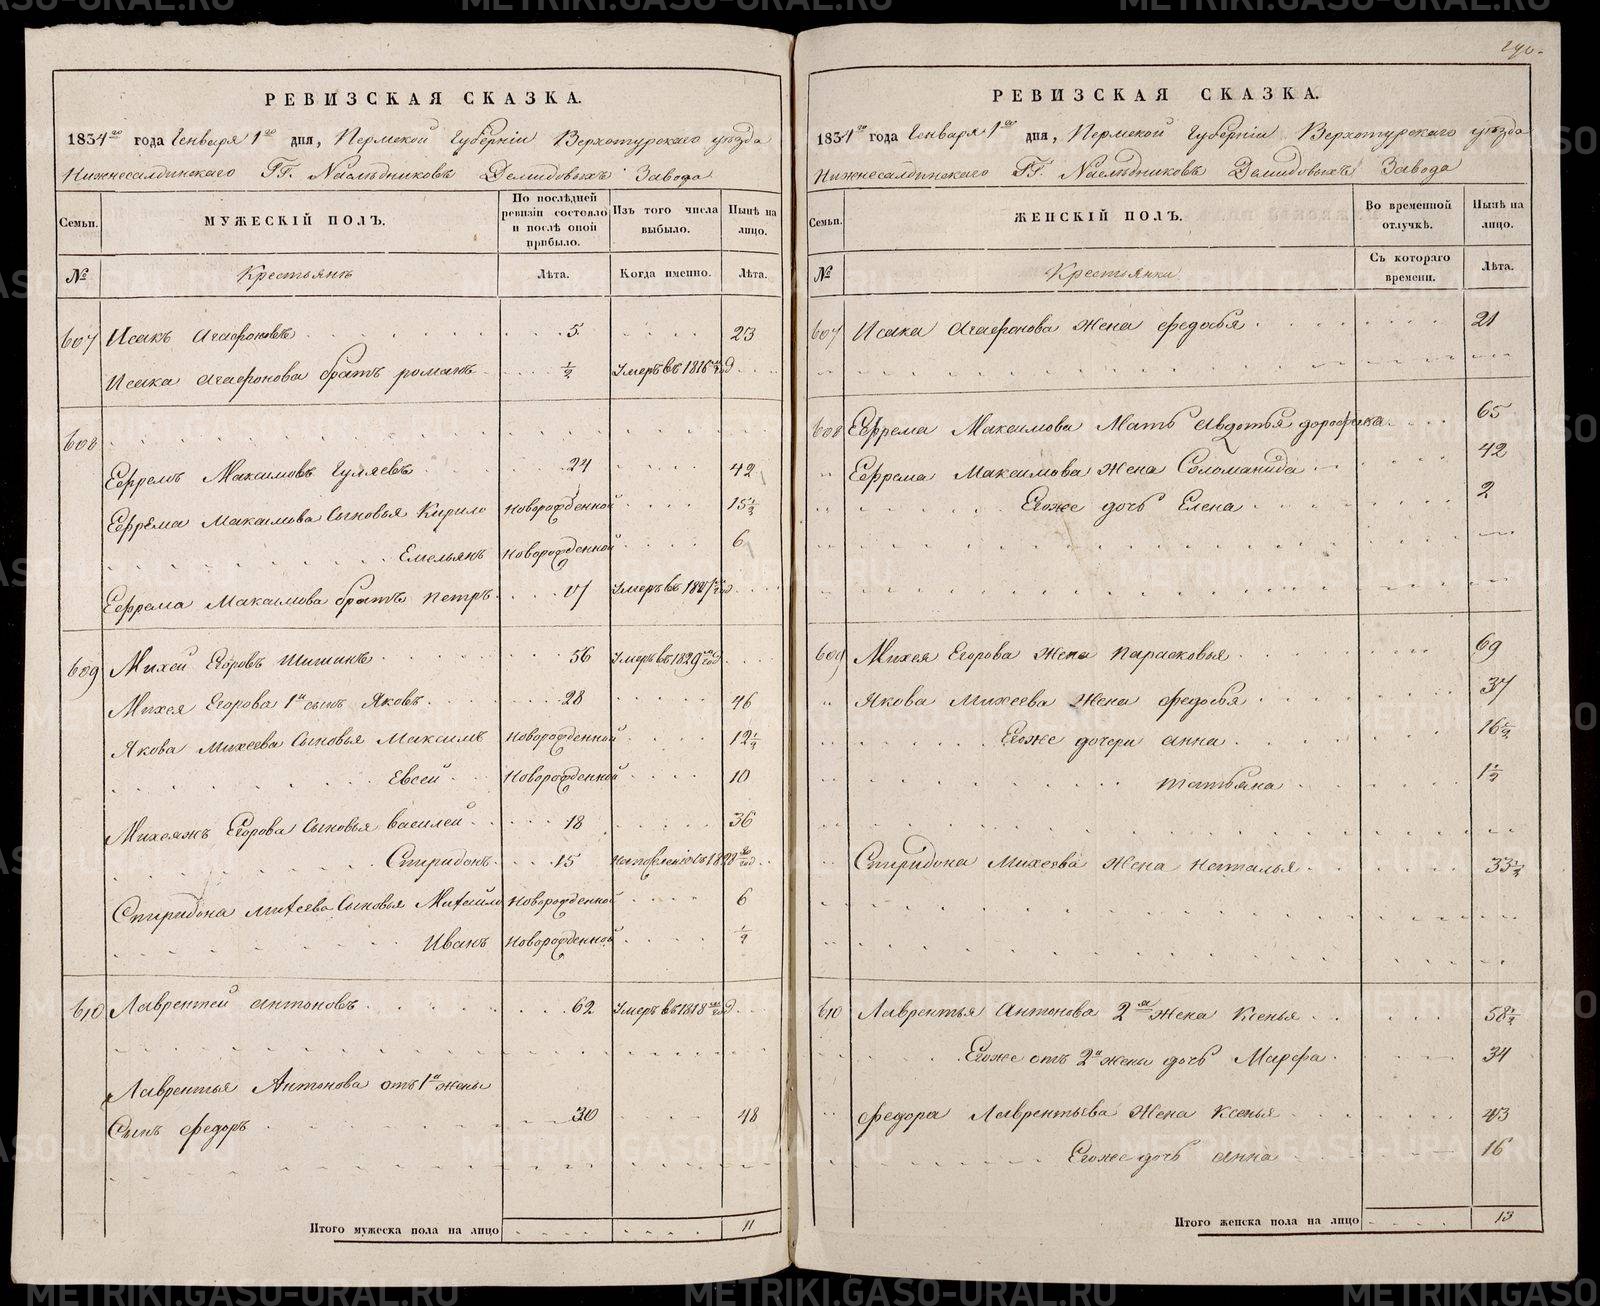 290.
РЕВИЗСКАЯ СКАЗКА.
1834го года Генваря 1го дня, Пермской Губерніи Верхотурскаго уѣзда
Нижнесалдинскаго ГГ. Наслѣдниковъ Демидовыхъ Завода
Семьи. МУЖЕСКІЙ ПОЛЪ. По послѣдней ревизіи состояло и послѣ оной прибыло. Изъ того числа выбыло. Нынѣ на лицо.
№ Крестьянъ Лѣта. Когда именно. Лѣта.
607 Исакъ Агафоновъ 5 23
Исака Агафонова братъ романъ 1/2 Умеръ въ 1816м год
608
Ефремъ Максимовъ Гуляевъ 24 42
Ефрема Максимова Сыновья Кирило Новорожденной 15 1/2
Емельянъ Новорожденной 6
Ефрема Максимова братъ петръ Умеръ въ 1827м год
609 Михей Егоровъ Шишинъ 56 Умеръ въ 1829м год
Михея Егорова 1й сынъ Яковъ 28 46
Якова Михеева Сыновья Максимъ Новорожденной 12 1/2
Евсей Новорожденной 10
Михеяжъ Егорова Сыновья Василей 18 36
Спиридонъ 15 год
Спиридона Михеева Сыновья Михайло Новорожденной 6
Иванъ Новорожденной 1/2
610 Лаврентей Антоновъ 62 Умеръ въ 1818м год
Лаврентья Антонова отъ 1й жены
Сынъ федоръ 30 48
Итого мужеска пола на лицо 11
РЕВИЗСКАЯ СКАЗКА.
1834го года Генваря 1го дня, Пермской Губерніи Верхотурскаго уѣзда
Нижнесалдинскаго ГГ. Наслѣдниковъ Демидовыхъ Завода
Семьи. ЖЕНСКІЙ ПОЛЪ. Во временной отлучкѣ. Нынѣ на лицо.
№ Крестьянки Съ котораго времени. Лѣта.
607 Исака Агафонова Жена федосья 21
608 Ефрема Максимова Мать Авдотья дорофеева 65
Ефрема Максимова Жена Соломанида 42
Егоже дочь Елена 2
609 Михея Егорова Жена парасковья 69
Якова Михеева Жена федосья 37
Егоже дочери анна 16 1/2
татьяна 1 1/2
Спиридона Михеева Жена наталья 33 1/2
610 Лаврентья Антонова 2я Жена Ксенья 58 1/2
Егоже отъ 2й жены дочь Марфа 34
федора Лаврентьева Жена Ксенья 43
Егоже дочь анна 16
Итого женска пола на лицо 13
METRIKI.GASO-URAL.RU